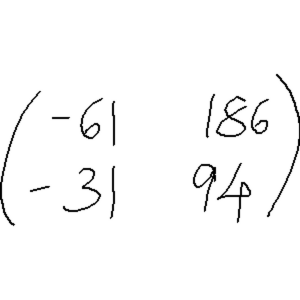 -61 186
-31 94